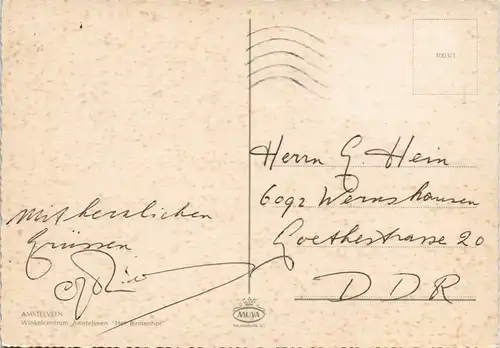 Mit herzlichen
Grüssen
AMSTELVEEN
Winkelcentrum Amstelveen "Het Binnenhof"
MUVA
1003/1
Herrn G. Hein
6092 Wernshausen
Goethestrasse 20
DDR